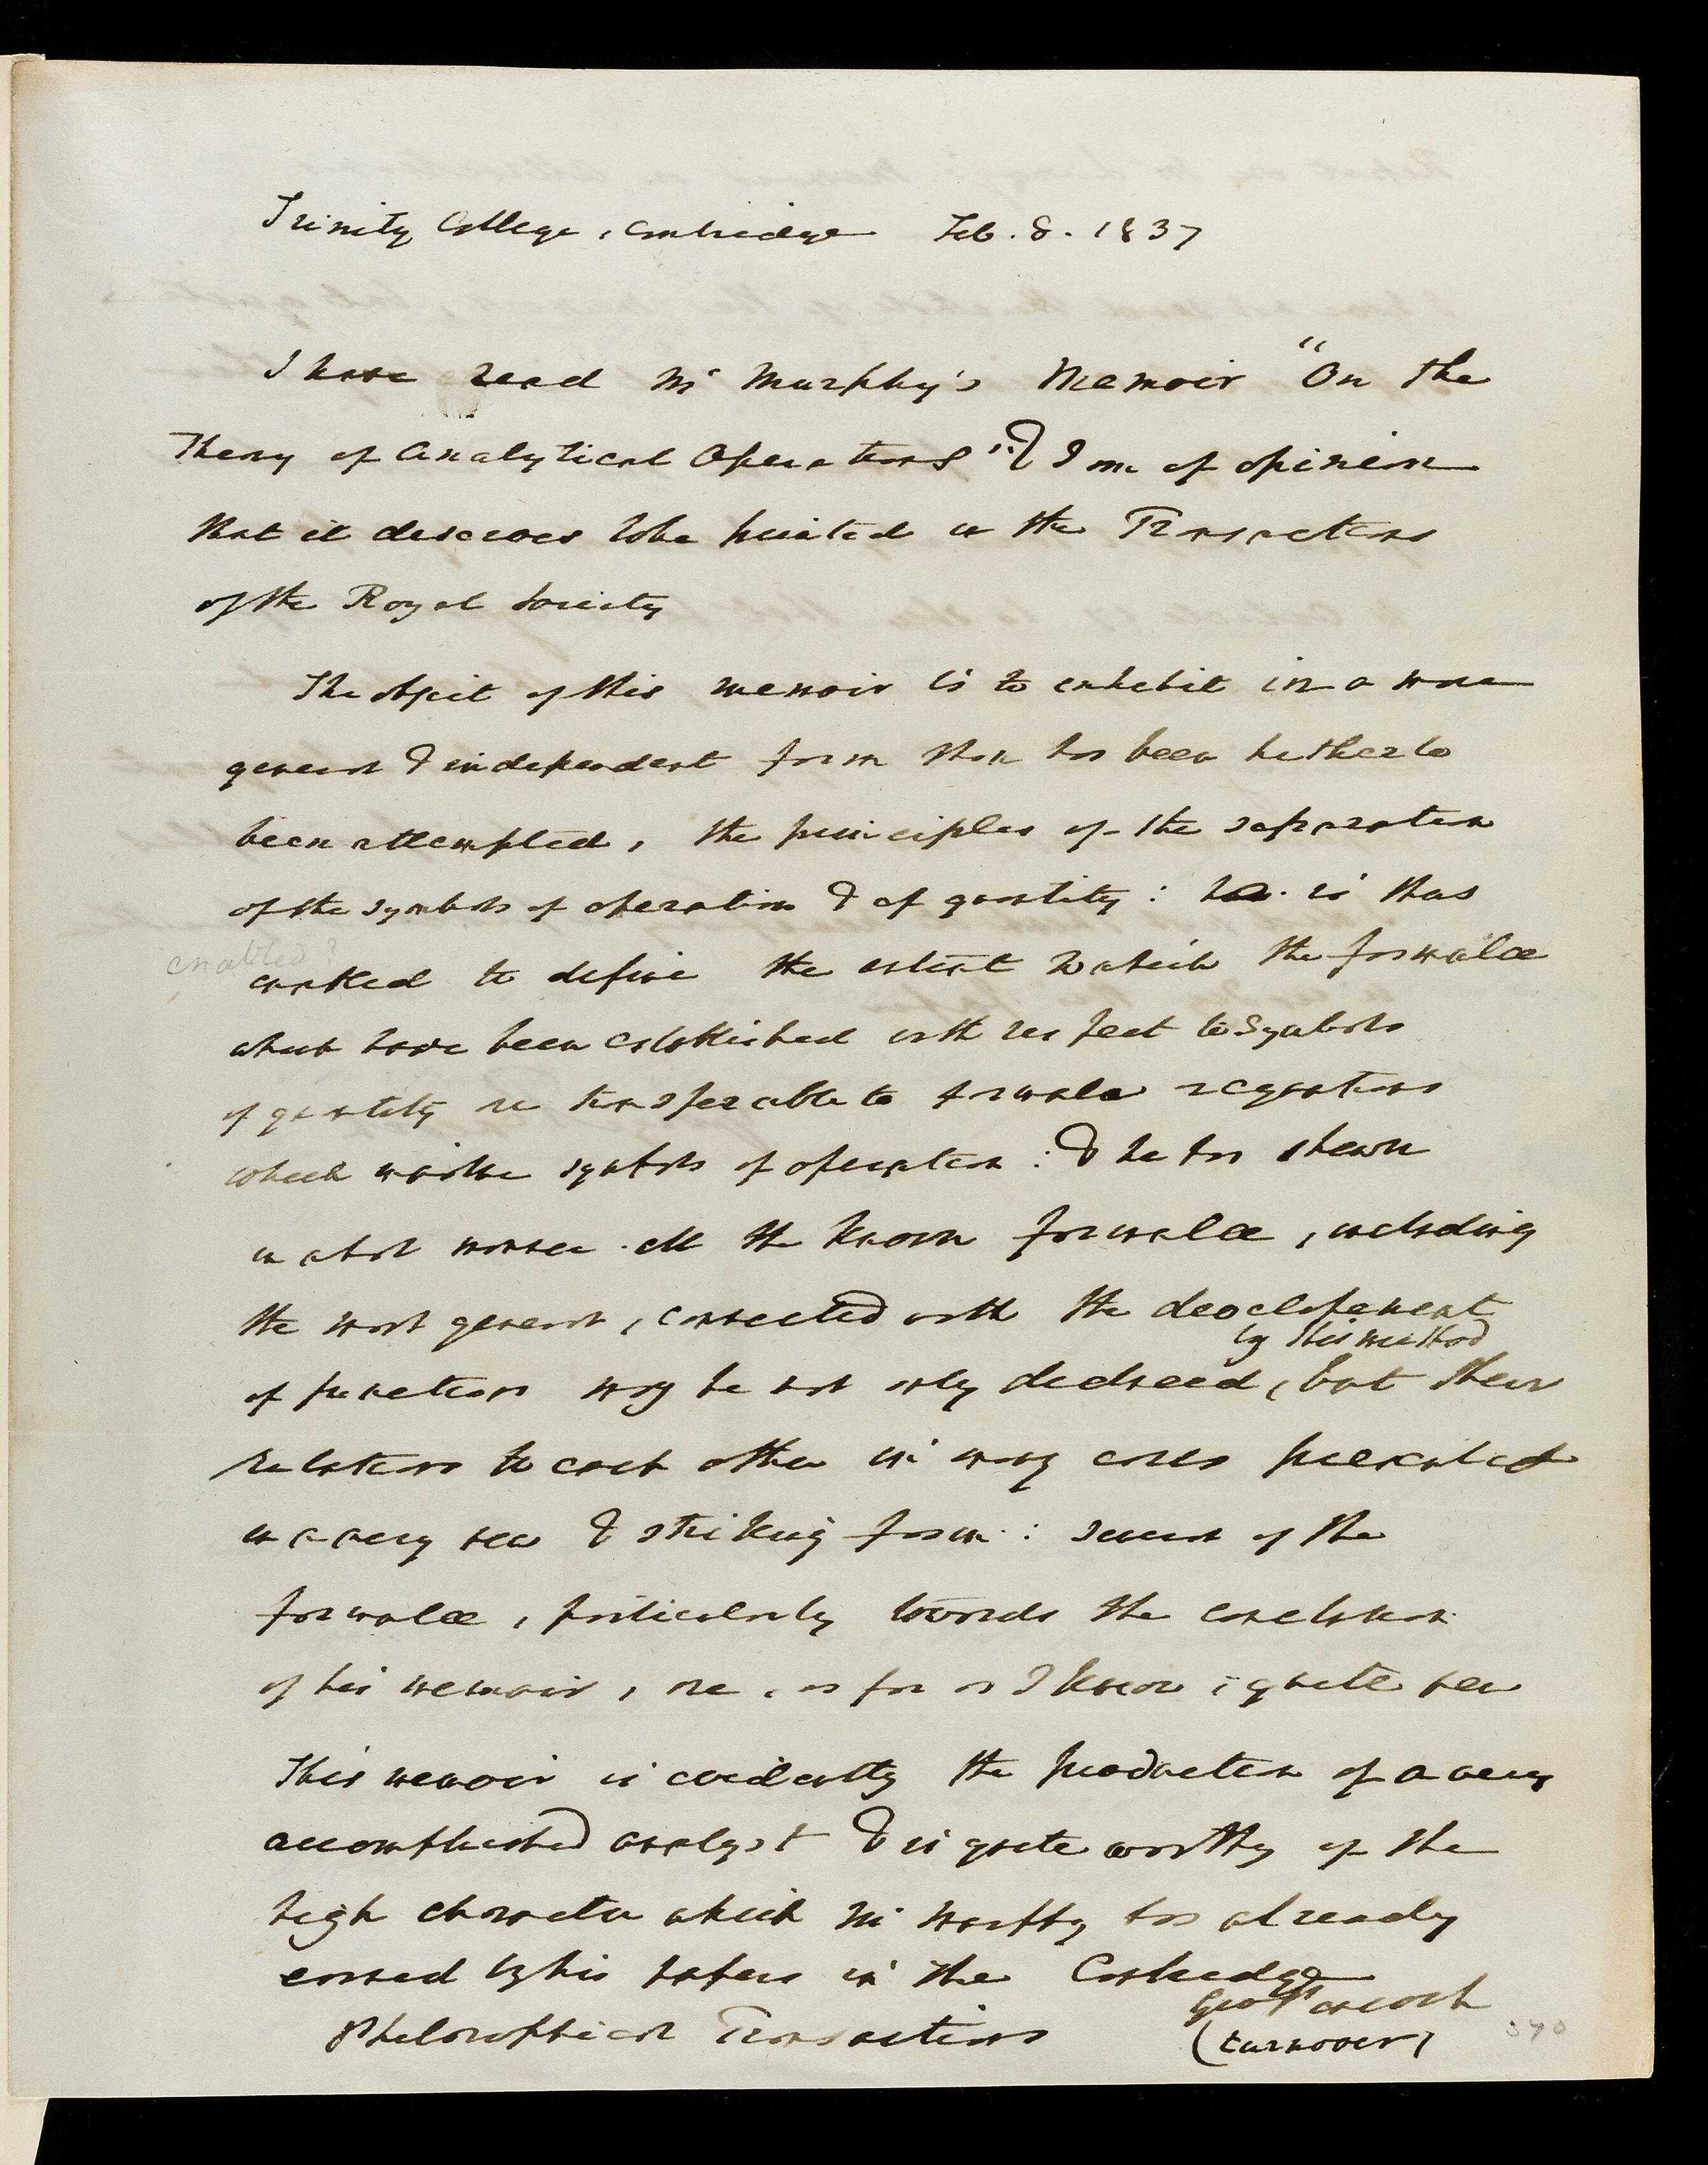 Trinity College, Cambridge Feb. 8. 1837
I have read Mr Murphy's Memoir "On the
Theory of Analytical Operations": & I am of opinion
that it deserves to be printed in the Transactions
of the Royal Society
The object of this memoir is to exhibit in a more
general & independent form than has been hitherto
been attempted, the principles of the separation
of the symbols of operation & of quantity: he is thus
enabled?
enabled to define the extent to which the formulæ
which have been established with respect to symbols
of quantity are transferable to formulæ equations
which involve symbols of operation: & he has shewn
in what manner all the known formulæ, including
the most general, connected with the developement
by this method
of functions may be not only deduced, but their
relations to each other in many cases presented
in a very new & striking form: several of the
formulæ, particularly towards the conclusion
of his memoir, are, as far as I know, quite new
This memoir is evidently the production of a very
accomplished analyst & is quite worthy of the
high character which Mr Murphy has already
earned by his papers in the Cambridge
Philosophical Transactions
Geo Peacock
(turn over)
390